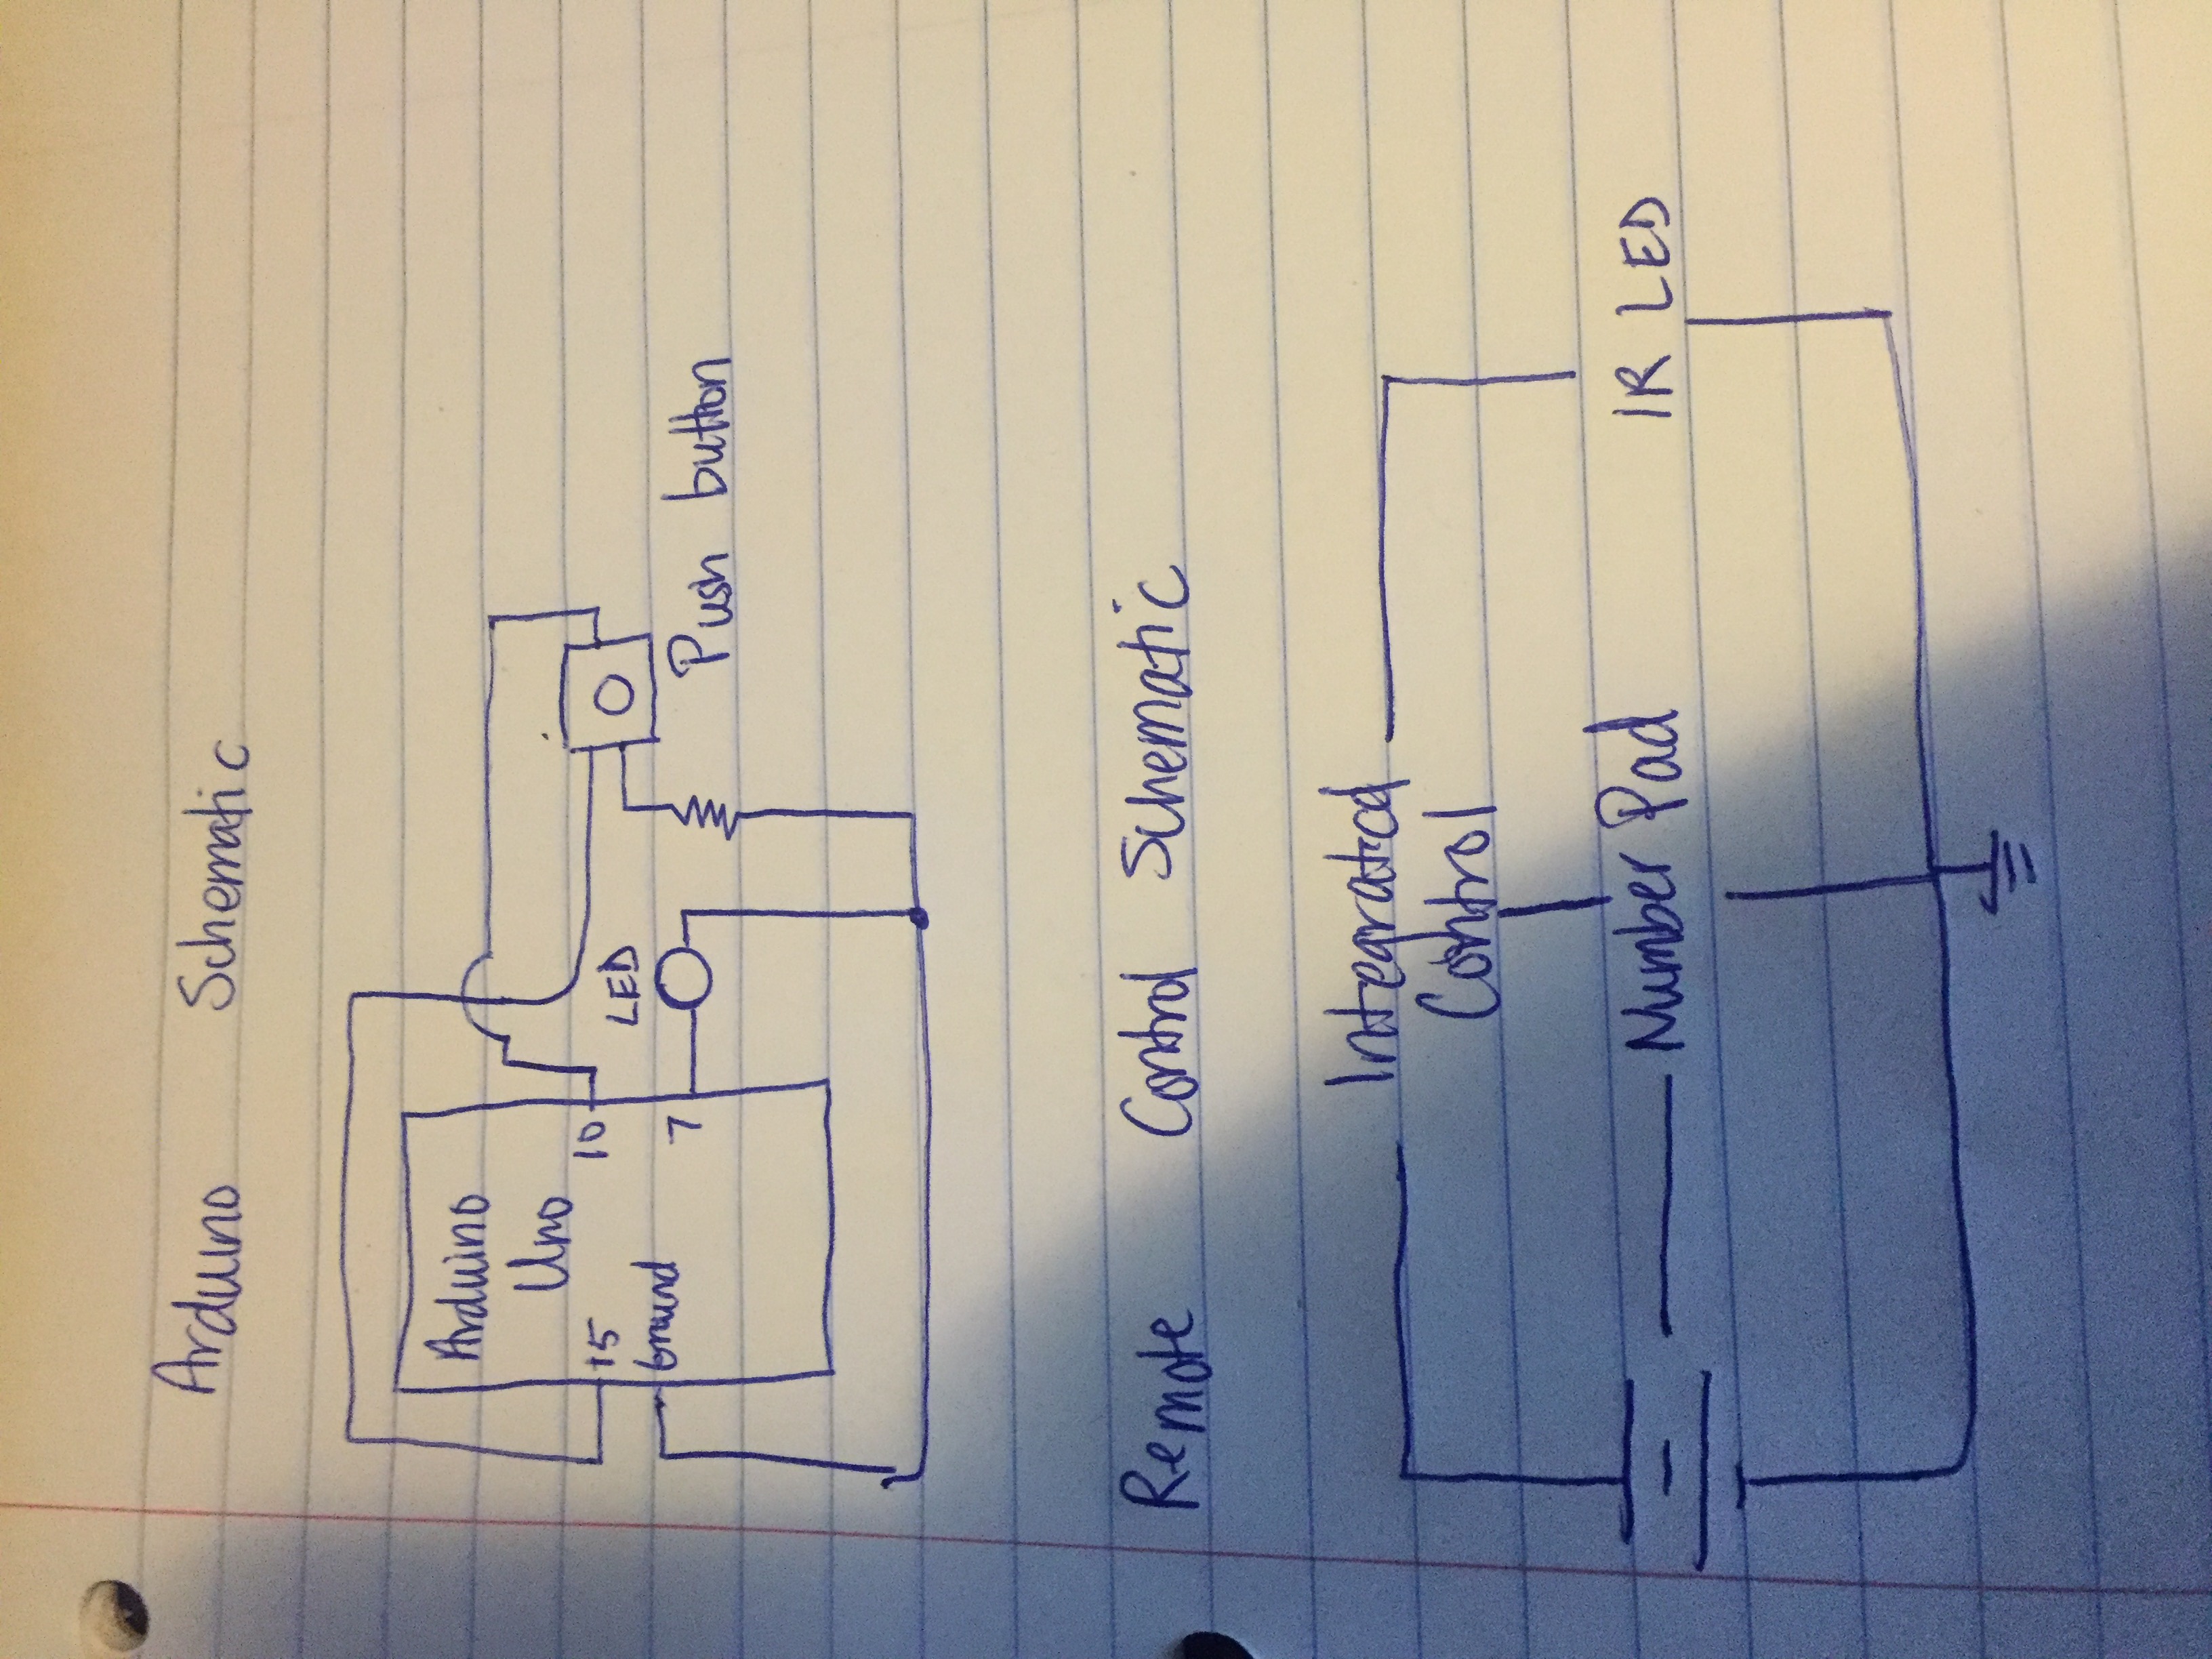 Arduino Schematic
Arduino
Uno
+5
10
LED
Ground
7
Push button
Remote Control Schematic
Integrated
Control
Number Pad
IR LED